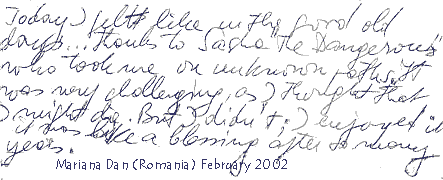 Today I felt like in the good old
days... thanks to Sasha "the Dangerous"
who took me on unknown paths. It
was very challenging, as I thought that
I might die. But I didn't; I enjoyed it
it was like a blessing after so many
years.
Mariana Dan (Romania) February 2002